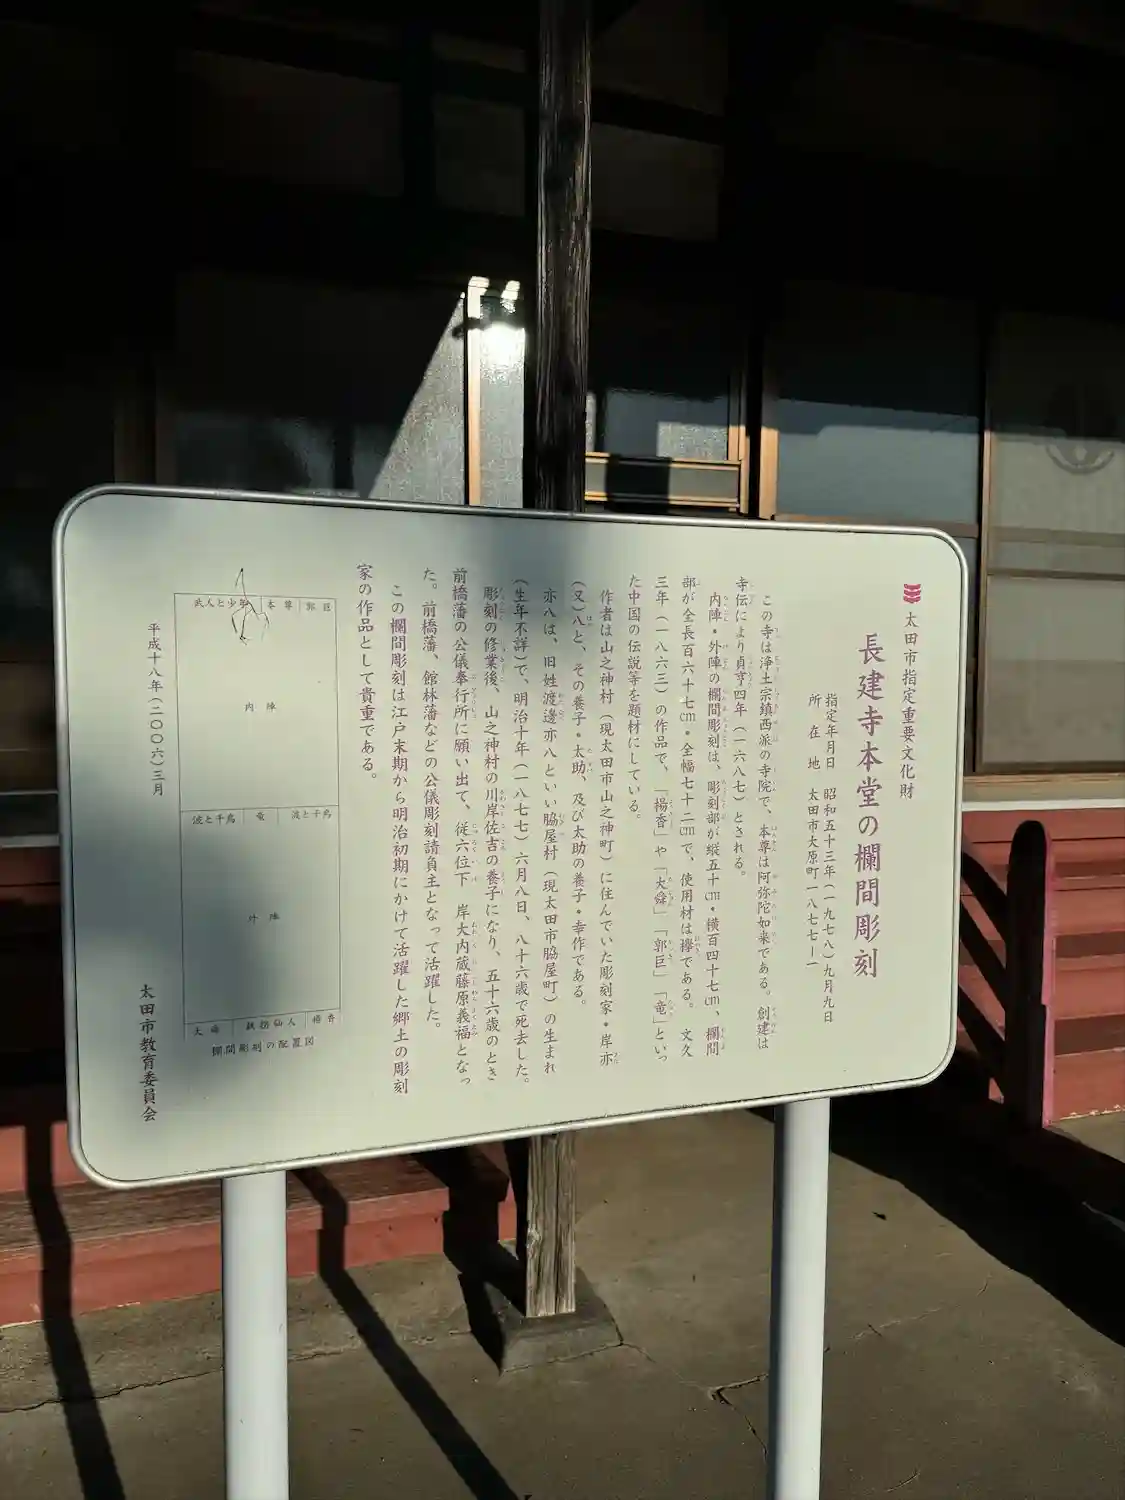 太田市指定重要文化財
長建寺本堂の欄間彫刻
指定年月日 昭和五十三年(一九七八)九月九日
所在地 太田市大原町一八七七―一
この寺は浄土宗鎮西派の寺院で、本尊は阿弥陀如来である。創建は
寺伝により貞亨四年(一六八七)とされる。
内陣・外陣の欄間彫刻は、彫刻部が縦五十㎝・横百四十七㎝、欄間
部が全長百六十七㎝・全幅七十二㎝で、使用材は欅である。文久
三年(一八六三)の作品で、「楊香」や「大舜」「郭巨」「竜」といっ
た中国の伝説等を題材にしている。
作者は山之神村(現太田市山之神町)に住んでいた彫刻家・岸亦
(又)八と、その養子・太助、及び太助の養子・幸作である。
亦八は、旧姓渡邊亦八といい脇屋村(現太田市脇屋町)の生まれ
(生年不詳)で、明治十年(一八七七)六月八日、八十六歳で死去した。
彫刻の修業後、山之神村の川岸佐吉の養子になり、五十六歳のとき
前橋藩の公儀奉行所に願い出て、従六位下 岸大内蔵藤原義福となっ
た。前橋藩、館林藩などの公儀彫刻請負主となって活躍した。
この欄間彫刻は江戸末期から明治初期にかけて活躍した郷土の彫刻
家の作品として貴重である。
武人と少年 本尊 郭巨
内陣
波と千鳥 竜 波と千鳥
外陣
大舜 鉄拐仙人 楊香
欄間彫刻の配置図
平成十八年(二〇〇六)三月
太田市教育委員会